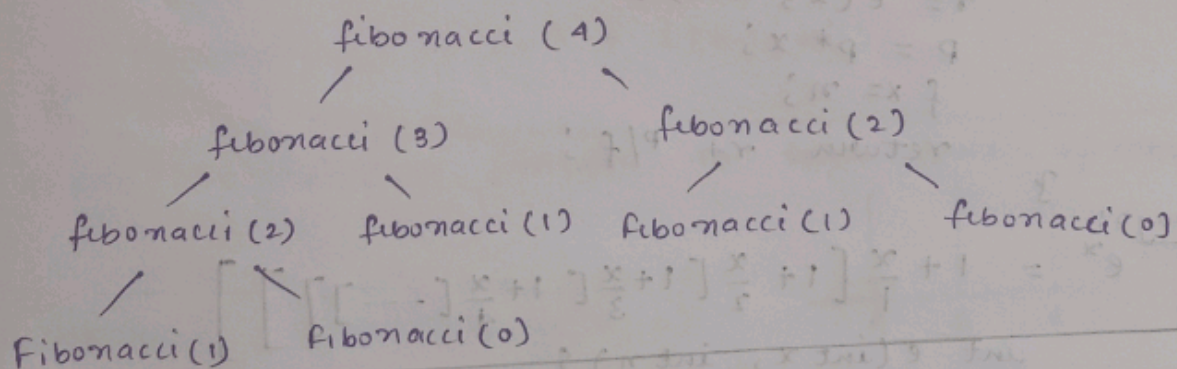 fibonacci (4)
fibonacci (3) fibonacci (2)
fibonacci (2) fibonacci (1) fibonacci (1) fibonacci (0)
Fibonacci (1) fibonacci (0)